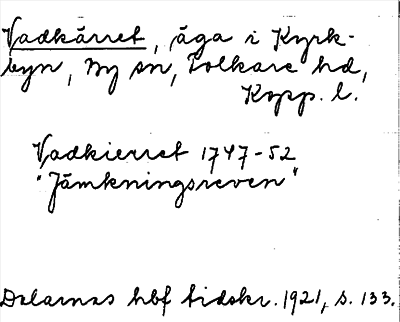 Vadkärret, äga i Kyrk-
byn, By sn, Folkare hd,
Kopp. l.
Vadkierret 1747-52
"Jämkningsreven"
Dalarnas hbf tidskr. 1921, s. 133.